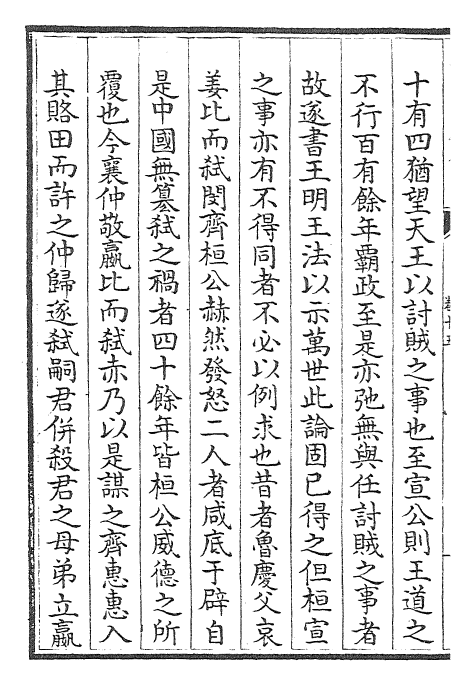 十有四猶望天王以討賊之事也至宣公則王道之
不行百有餘年覇政至是亦弛無與任討賊之事者
故遂書王明王法以示萬世此論固已得之但桓宣
之事亦有不得同者不必以例求也昔者魯慶父哀
姜比而弑閔齊桓公赫然發怒二人者咸底于辟自
是中國無簒弑之禍者四十餘年皆桓公威德之所
覆也今襄仲敬嬴比而弑赤乃以是謀之齊惠惠入
其賂田而許之仲歸遂弑嗣君併殺君之母弟立嬴